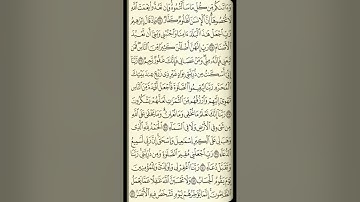 وَءَاتَىٰكُم مِّن كُلِّ مَا سَأَلْتُمُوهُ وَإِن تَعُدُّوا۟ نِعْمَتَ ٱللَّهِ
لَا تُحْصُوهَآ إِنَّ ٱلْإِنسَـٰنَ لَظَلُومٌ كَفَّارٌ ٣٤ وَإِذْ قَالَ إِبْرَٰهِيمُ
رَبِّ ٱجْعَلْ هَـٰذَا ٱلْبَلَدَ ءَامِنًا وَٱجْنُبْنِى وَبَنِىَّ أَن نَّعْبُدَ
ٱلْأَصْنَامَ ٣٥ رَبِّ إِنَّهُنَّ أَضْلَلْنَ كَثِيرًا مِّنَ ٱلنَّاسِ فَمَن
تَبِعَنِى فَإِنَّهُۥ مِنِّى وَمَنْ عَصَانِى فَإِنَّكَ غَفُورٌ رَّحِيمٌ ٣٦ رَّبَّنَآ
إِنِّىٓ أَسْكَنتُ مِن ذُرِّيَّتِى بِوَادٍ غَيْرِ ذِى زَرْعٍ عِندَ بَيْتِكَ
ٱلْمُحَرَّمِ رَبَّنَا لِيُقِيمُوا۟ ٱلصَّلَوٰةَ فَٱجْعَلْ أَفْـِٔدَةً مِّنَ ٱلنَّاسِ
تَهْوِىٓ إِلَيْهِمْ وَٱرْزُقْهُم مِّنَ ٱلثَّمَرَٰتِ لَعَلَّهُمْ يَشْكُرُونَ
٣٧ رَبَّنَآ إِنَّكَ تَعْلَمُ مَا نُخْفِى وَمَا نُعْلِنُ وَمَا يَخْفَىٰ عَلَى ٱللَّهِ
مِن شَىْءٍ فِى ٱلْأَرْضِ وَلَا فِى ٱلسَّمَآءِ ٣٨ ٱلْحَمْدُ لِلَّهِ ٱلَّذِى
وَهَبَ لِى عَلَى ٱلْكِبَرِ إِسْمَـٰعِيلَ وَإِسْحَـٰقَ إِنَّ رَبِّى لَسَمِيعُ
ٱلدُّعَآءِ ٣٩ رَبِّ ٱجْعَلْنِى مُقِيمَ ٱلصَّلَوٰةِ وَمِن ذُرِّيَّتِى رَبَّنَا
وَتَقَبَّلْ دُعَآءِ ٤٠ رَبَّنَا ٱغْفِرْ لِى وَلِوَٰلِدَىَّ وَلِلْمُؤْمِنِينَ
يَوْمَ يَقُومُ ٱلْحِسَابُ ٤١ وَلَا تَحْسَبَنَّ ٱللَّهَ غَـٰفِلًا عَمَّا يَعْمَلُ
ٱلظَّـٰلِمُونَ إِنَّمَا يُؤَخِّرُهُمْ لِيَوْمٍ تَشْخَصُ فِيهِ ٱلْأَبْصَـٰرُ ٤٢